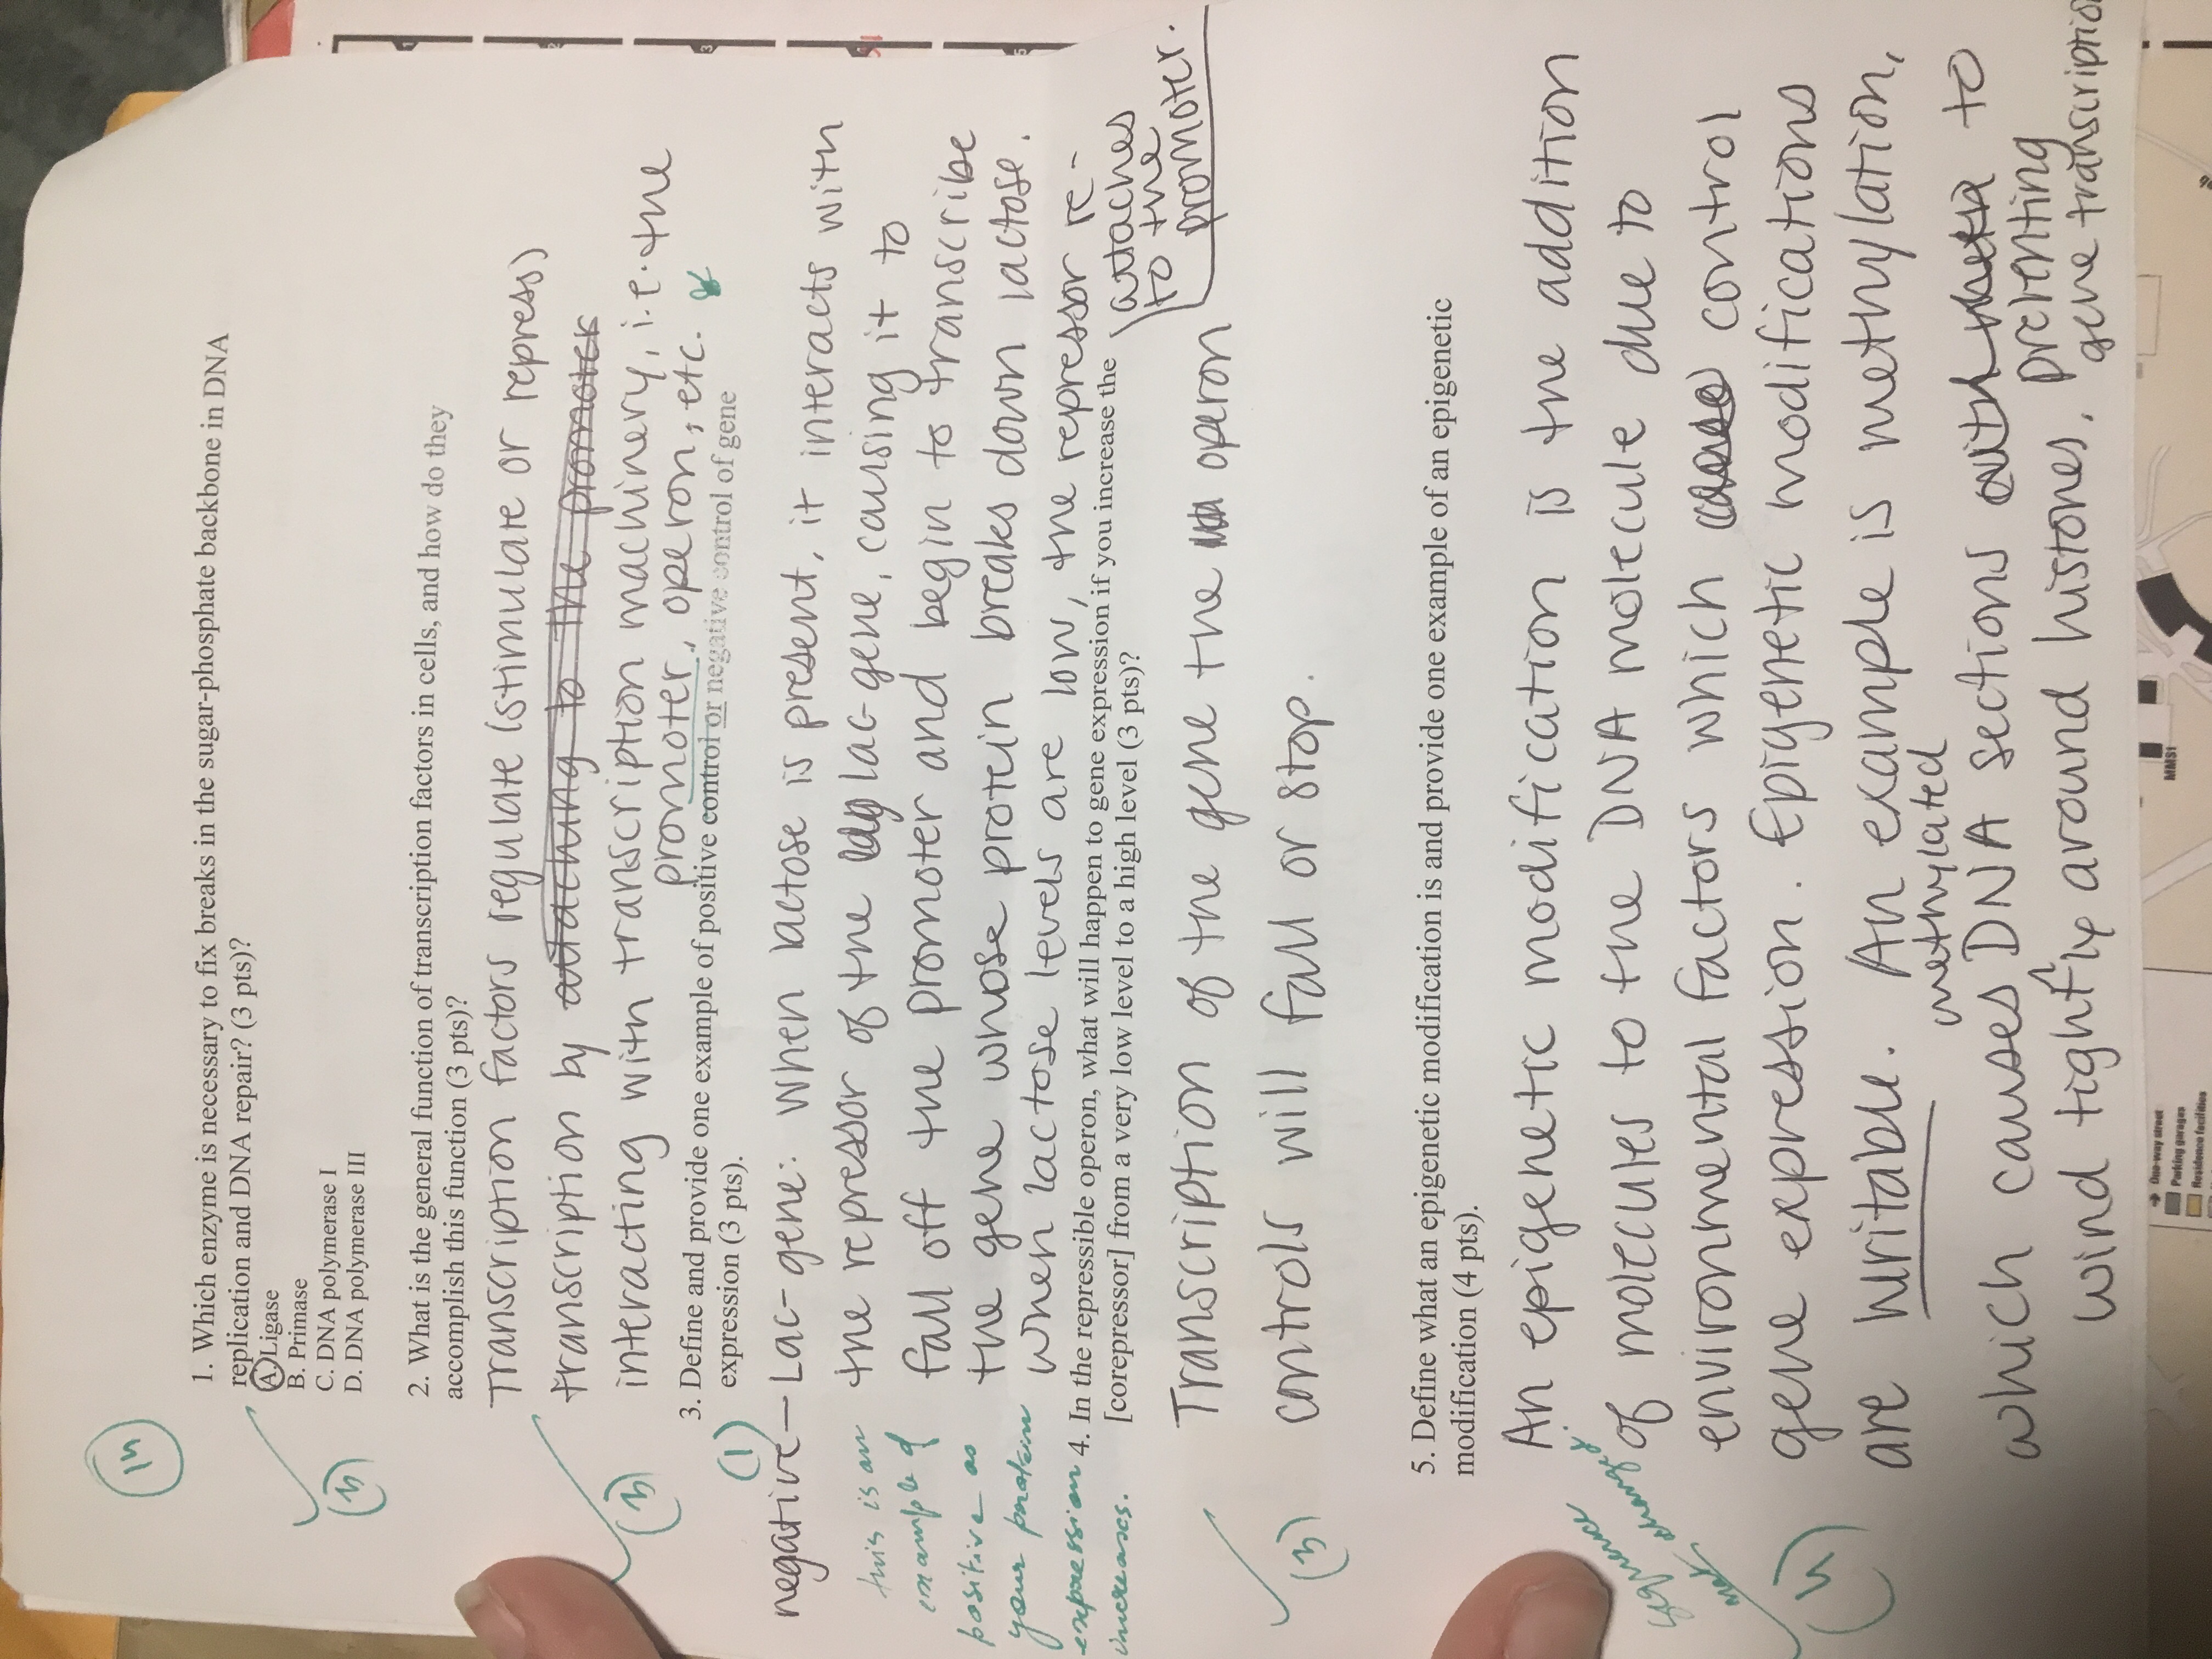 14
1. Which enzyme is necessary to fix breaks in the sugar-phosphate backbone in DNA
replication and DNA repair? (3 pts)?
A. Ligase
B. Primase
C. DNA polymerase I
D. DNA polymerase III
(3)
2. What is the general function of transcription factors in cells, and how do they
accomplish this function (3 pts)?
Transcription factors regulate (stimulate or repress)
transcription by attaching to the promoter
interacting with transcription machinery, i.e. the
promoter, operon, etc.
(3)
3. Define and provide one example of positive control or negative control of gene
expression (3 pts).
(1)
negative – Lac-gene: When lactose is present, it interacts with
the repressor of the lac-gene, causing it to
fall off the promoter and begin to transcribe
the gene whose protein breaks down lactose.
When lactose levels are low, the repressor re-
attaches
to the
promoter.
this is an
example of
positive as
your protein
expression
increases.
4. In the repressible operon, what will happen to gene expression if you increase the
[corepressor] from a very low level to a high level (3 pts)?
Transcription of the gene the operon
controls will fall or stop.
(3)
5. Define what an epigenetic modification is and provide one example of an epigenetic
modification (4 pts).
An epigenetic modification is the addition
of molecules to the DNA molecule due to
environmental factors which control
gene expression. Epigenetic modifications
are heritable. An example is methylation,
methylated
which causes DNA sections to
wind tightly around histones, preventing
gene transcriptio
sequence
not changed.
(4)
1
2
3
5
One-way street
Parking garages
Residence facilities
MMS1